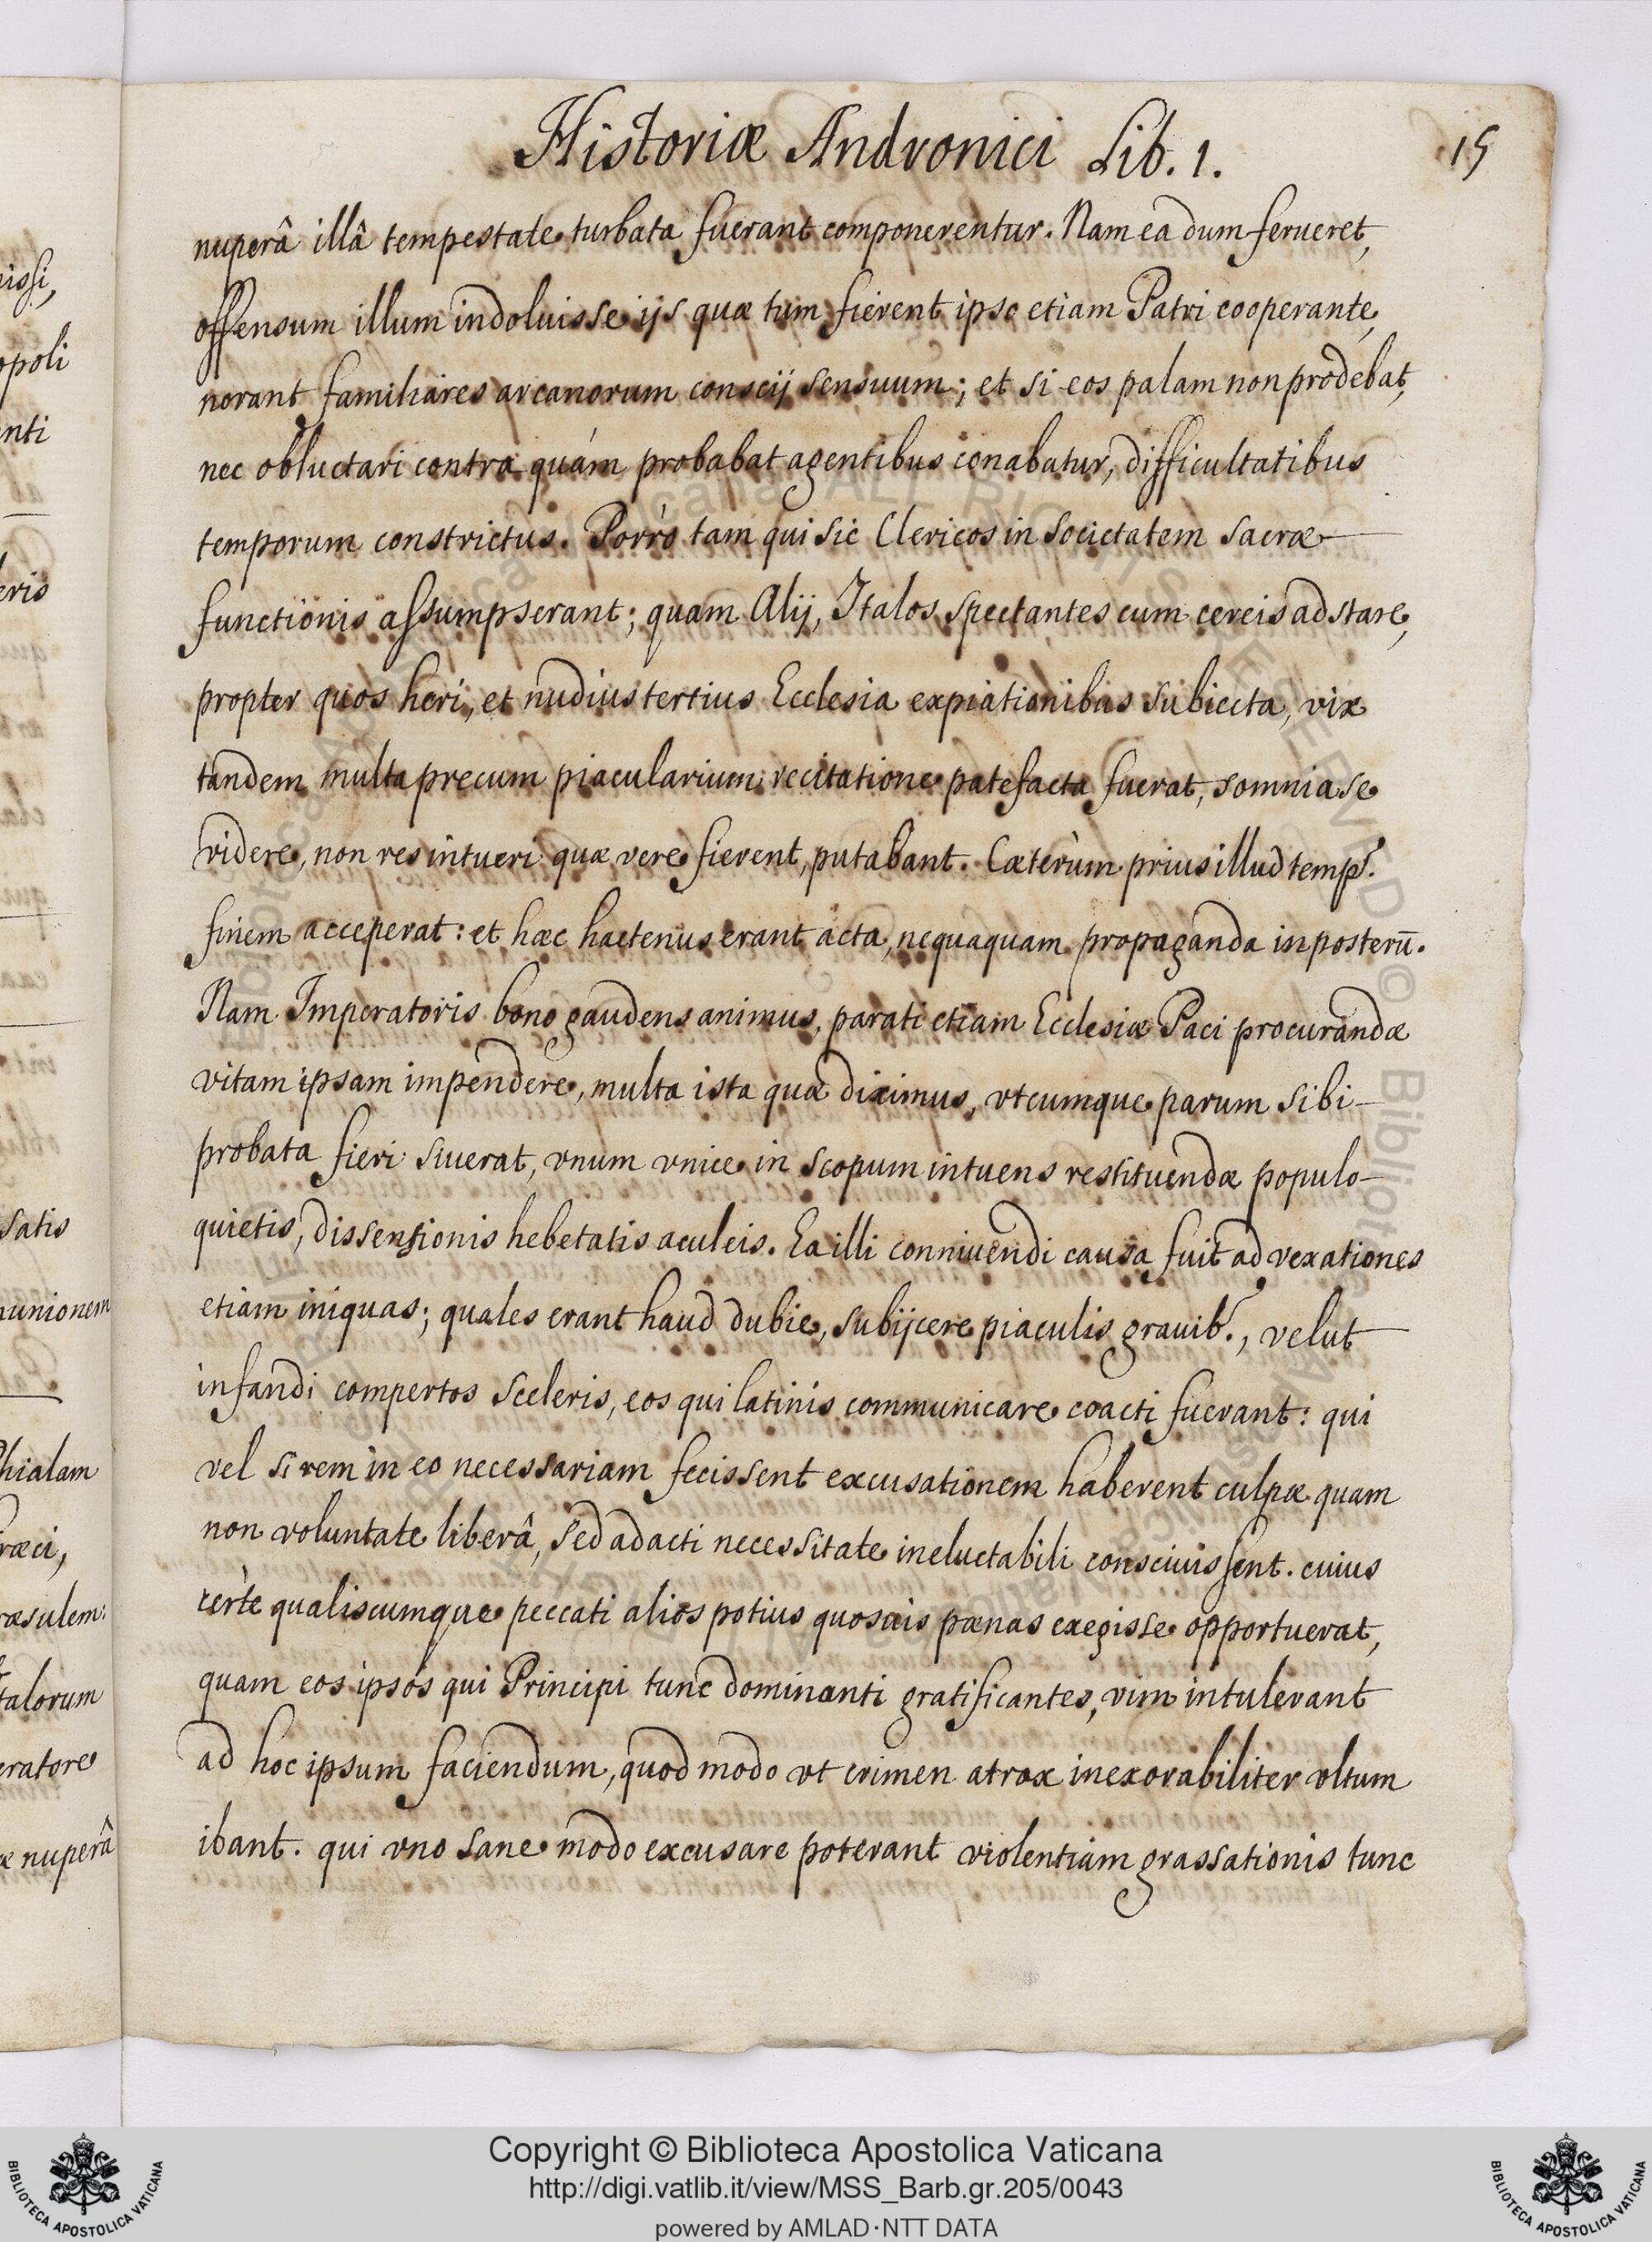 Historiæ Andronici Lib. 1.
15
nuperâ illâ tempestate turbata fuerant componerentur. Nam ea dum ferueret,
offensum illum indoluisse ijs quæ tum fierent ipso etiam Patri cooperante,
norant familiares arcanorum conscij sensuum; et si eos palam non prodebat,
nec obluctari contra quám probabat agentibus conabatur, difficultatibus
temporum constrictus. Porrò tam qui sic Clericos in societatem sacræ
functionis assumpserant; quam Alij, Italos spectantes cum cereis adstare,
propter quos heri, et nudiustertius Ecclesia expiationibus subiecta, vix
tandem multa precum piacularium recitatione patefacta fuerat, somnia se
videre, non res intueri quæ vere fierent, putabant. Cæterùm prius illud temp.
finem acceperat: et hæc hactenus erant acta, nequaquam propaganda in posterū.
Nam Imperatoris bono gaudens animus, parati etiam Ecclesiæ Paci procurandæ
vitam ipsam impendere, multa ista quæ diximus, vtcumque parum sibi
probata fieri siuerat, vnum vnice in scopum intuens restituendæ populo
quietis, dissensionis hebetatis aculeis. Ea illi conniuendi causa fuit ad vexationes
etiam iniquas; quales erant haud dubie, subijcere piaculis grauib., velut
infandi compertos sceleris, eos qui latinis communicare coacti fuerant: qui
vel si rem in eo necessariam fecissent excusationem haberent culpæ quam
non voluntate liberâ, sed adacti necessitate ineluctabili consciuissent. cuius
certe qualiscumque peccati alios potius quosuis pœnas exegisse opportuerat,
quam eos ipsos qui Principi tunc dominanti gratificantes, vim intulerant
ad hoc ipsum faciendum, quod modo vt crimen atrox inexorabiliter vltum
ibant. qui vno sane modo excusare poterant violentiam grassationis tunc
issi,
opoli
nti
eris
satis
unionem
hialam
ræci,
ræsulem:
talorum
eratore
æ nuperâ
Copyright © Biblioteca Apostolica Vaticana
http://digi.vatlib.it/view/MSS_Barb.gr.205/0043
powered by AMLAD·NTT DATA
BIBLIOTECA APOSTOLICA VATICANA
BIBLIOTECA APOSTOLICA VATICANA